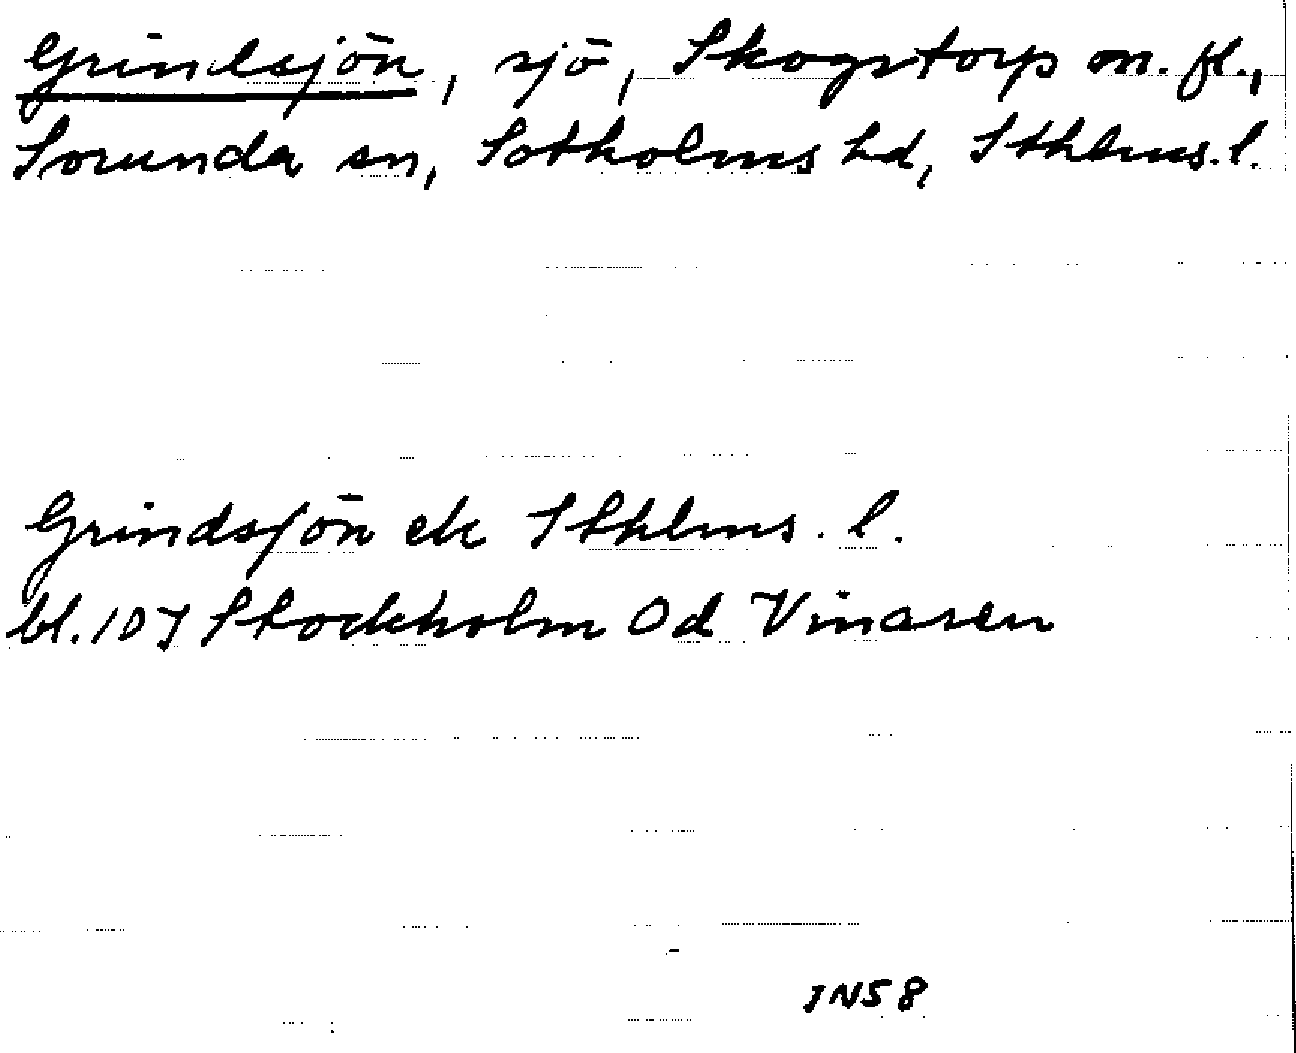 Grindsjön, sjö, Skogstorp m. fl.,
Sorunda sn, Sotholms hd, Sthlms. l.
Grindsjön ek Sthlms. l.
bl. 107 Stockholm Od Vinåsen
JN58